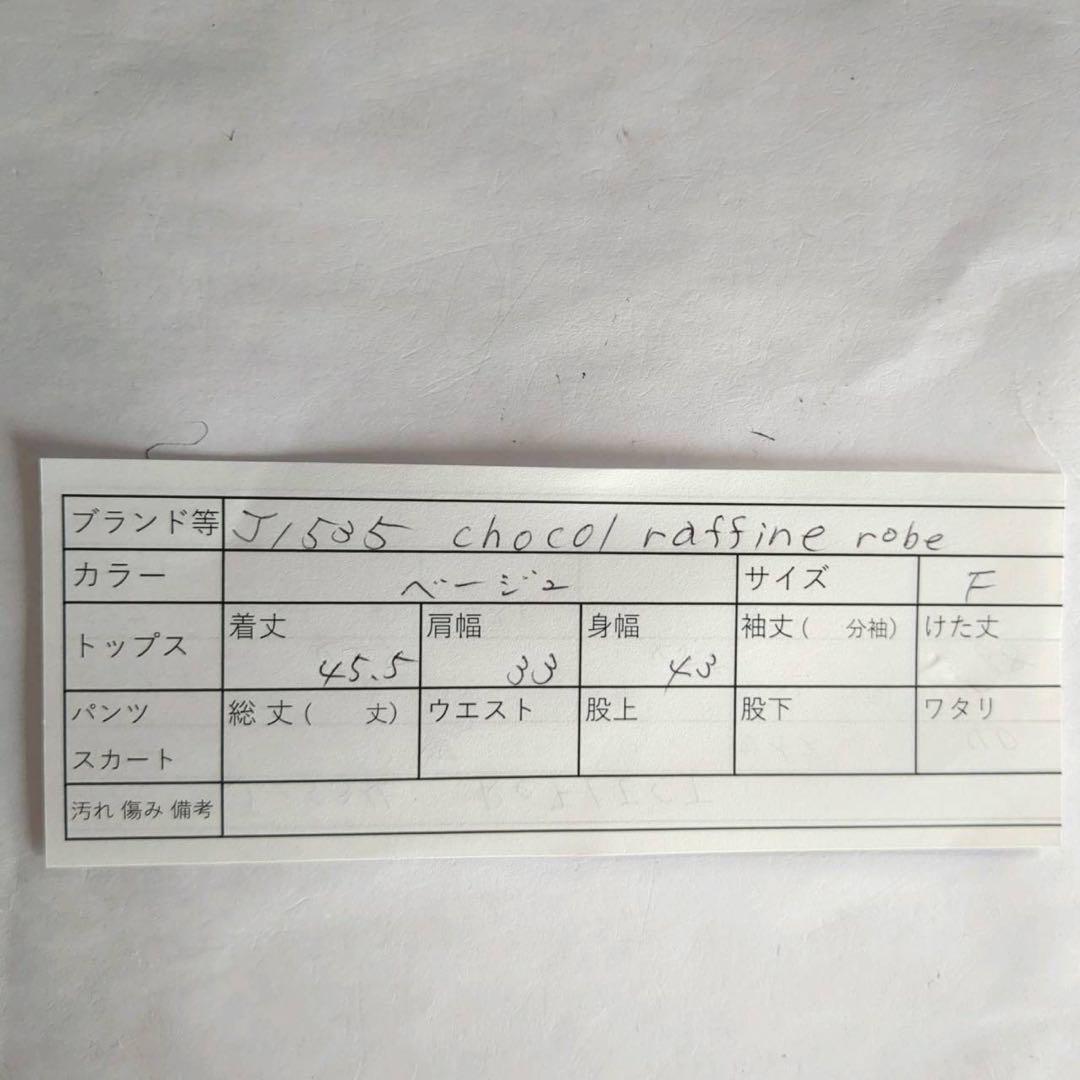 ブランド等 J1535 chocol raffine robe
カラー ベージュ サイズ F
トップス 着丈 45.5 肩幅 33 身幅 43 袖丈( 分袖) けた丈
パンツ スカート 総丈( 丈) ウエスト 股上 股下 ワタリ
汚れ 傷み 備考